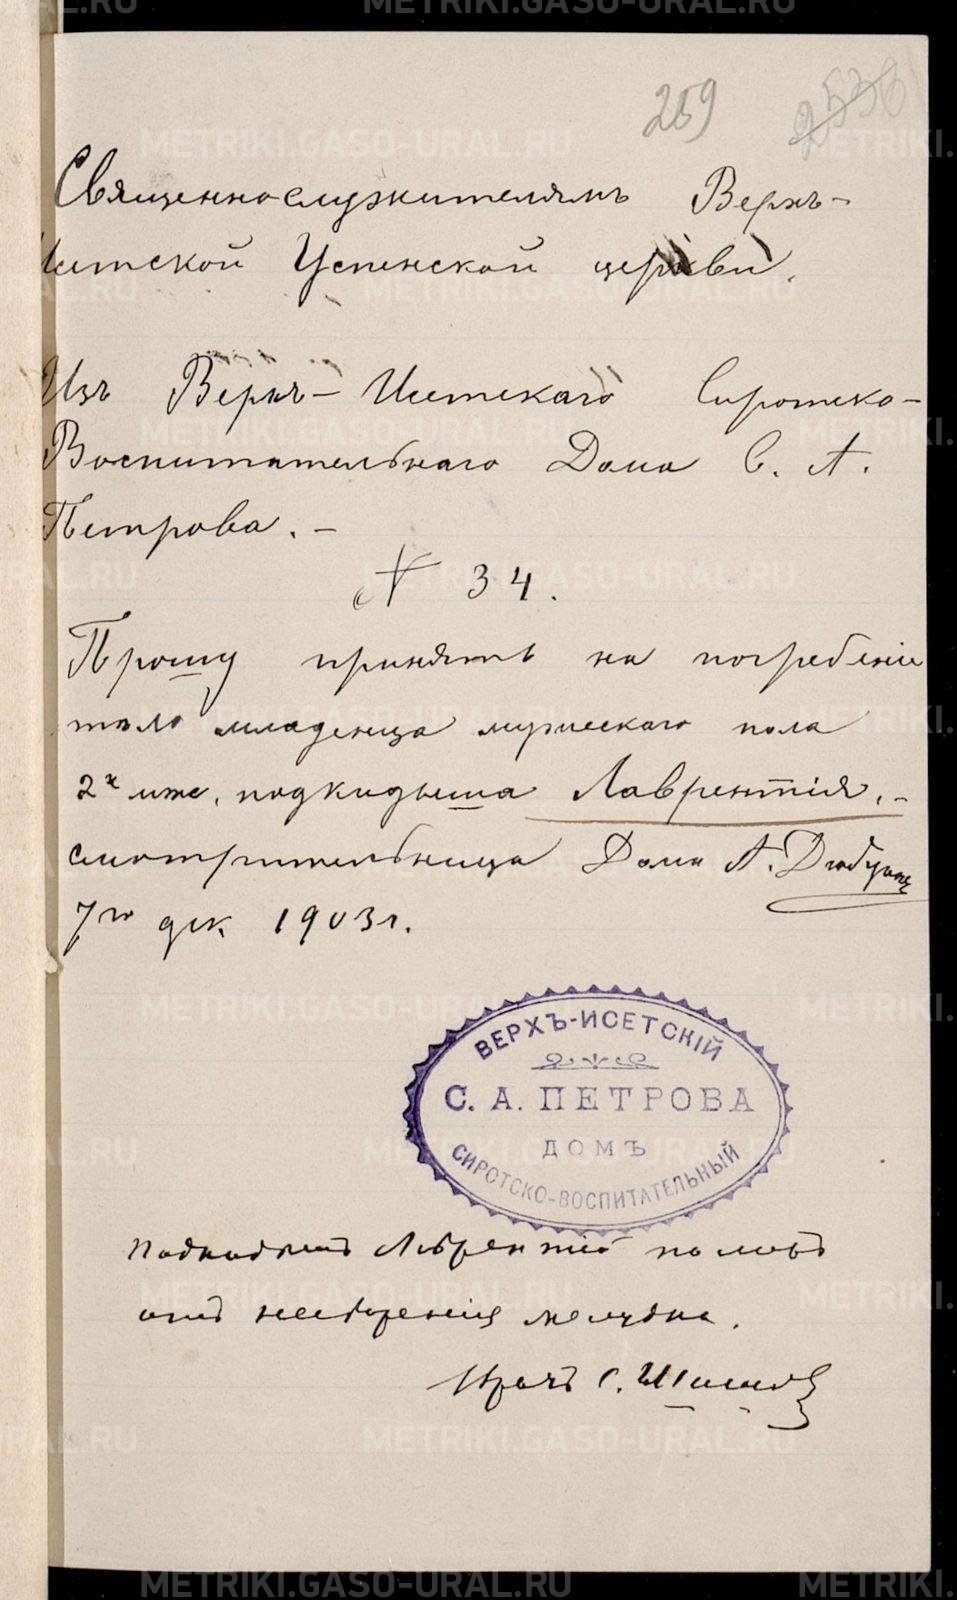 259
2536
Священнослужителямъ Верхъ-
Исетской Успенской церкви.
Изъ Верхъ-Исетскаго Сиротско-
Воспитательнаго Дома С. А.
Петрова. -
№ 34.
Прошу принять на погребеніе
тѣло младенца мужескаго пола
2х мѣс. подкидыша Лаврентія. -
смотрительница Дома А.
7го дек 1903 г.
ВЕРХЪ-ИСЕТСКІЙ
С. А. ПЕТРОВА
ДОМЪ
СИРОТСКО-ВОСПИТАТЕЛЬНЫЙ
Подкидышъ Лаврентій померъ
отъ несваренія желудка.
Врачъ С.
METRIKI.GASO-URAL.RU